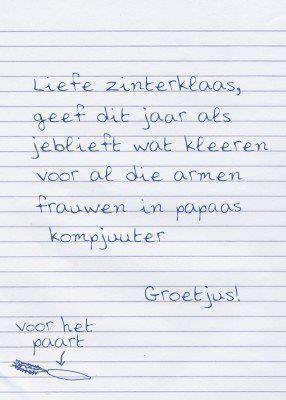 Liefe zinterklaas,
geef dit jaar als
jeblieft wat kleeren
voor al die armen
frauwen in papaas
kompjuuter
Groetjus!
voor het
paart